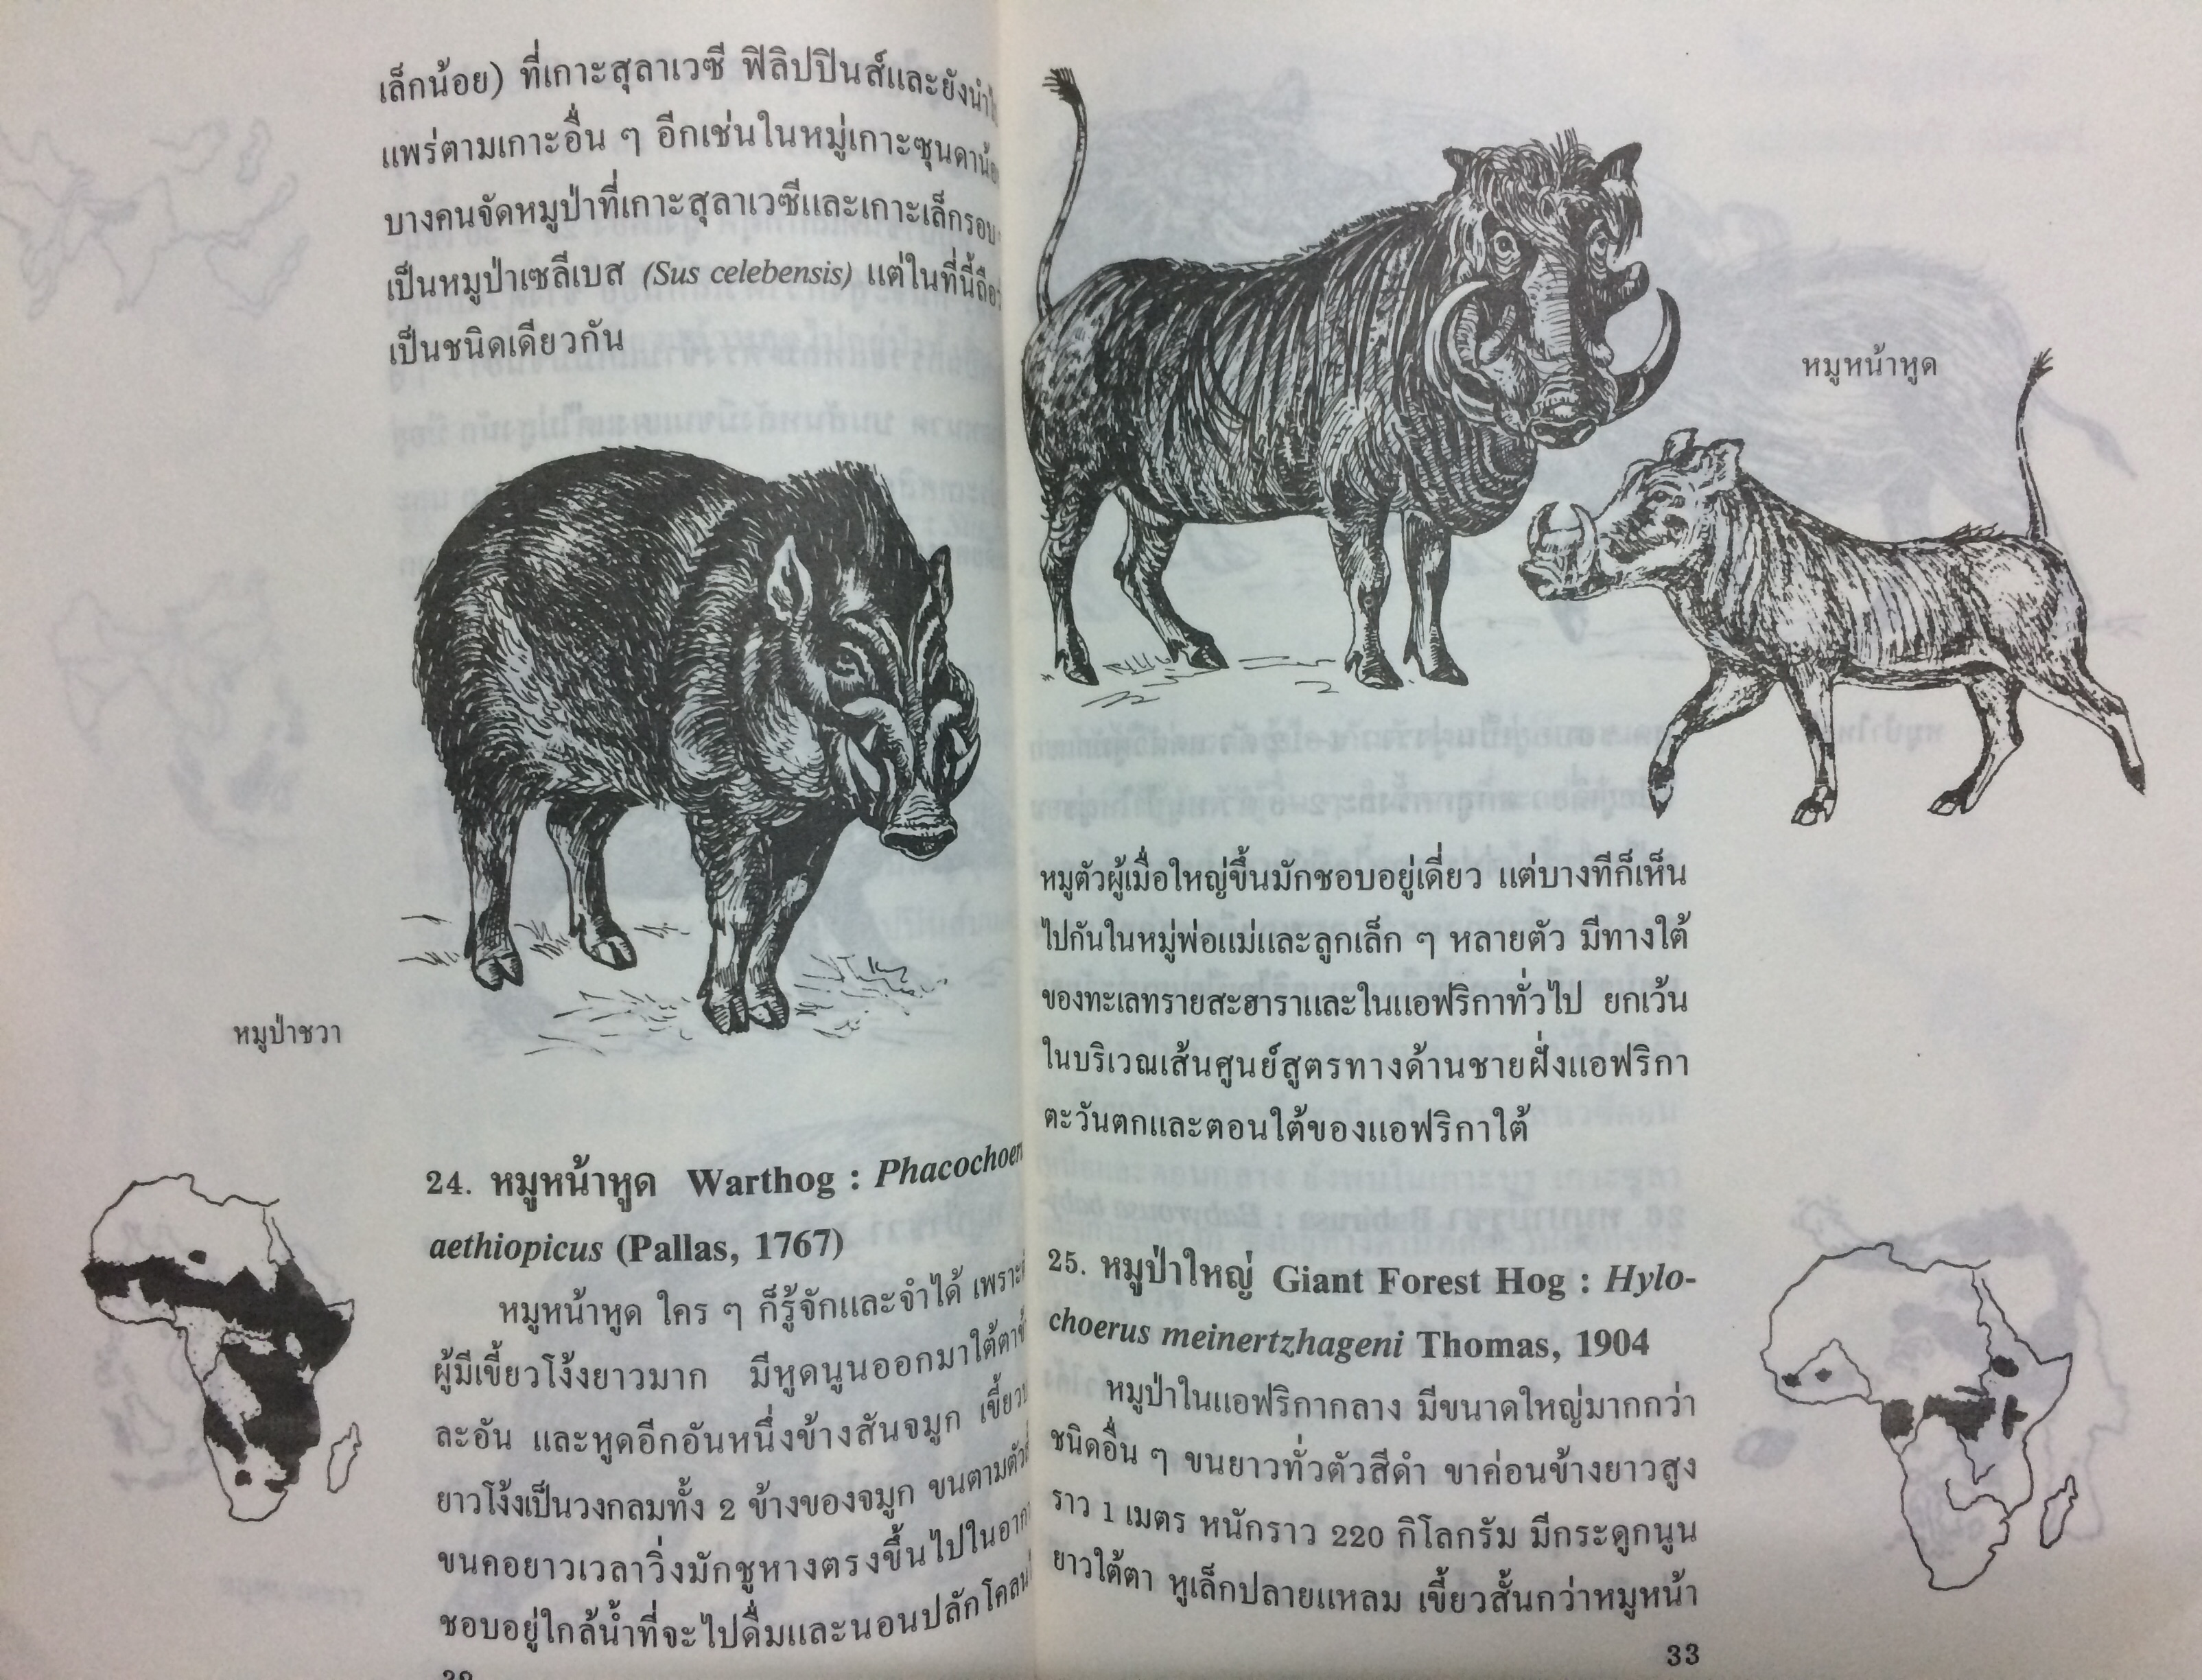 เล็กน้อย) ที่เกาะสุลาเวซี ฟิลิปปินส์และยัง
แพร่ตามเกาะอื่น ๆ อีกเช่นในหมู่เกาะซุนดา
บางคนจัดหมูป่าที่เกาะสุลาเวซีและเกาะเล็กรอบ
เป็นหมูป่าเซลีเบส (Sus celebensis) แต่ในที่นี้
เป็นชนิดเดียวกัน
หมูป่าชวา
24. หมูหน้าหูด Warthog : Phacochoer
aethiopicus (Pallas, 1767)
หมูหน้าหูด ใคร ๆ ก็รู้จักและจำได้ เพราะ
ผู้มีเขี้ยวโง้งยาวมาก มีหูดนูนออกมาใต้ตา
ละอัน และหูดอีกอันหนึ่งข้างสันจมูก เขี้ยว
ยาวโง้งเป็นวงกลมทั้ง 2 ข้างของจมูก ขนตามตัว
ขนคอยาวเวลาวิ่งมักชูหางตรงขึ้นไปในอากา
ชอบอยู่ใกล้น้ำที่จะไปดื่มและนอนปลักโคลน
หมูหน้าหูด
หมูตัวผู้เมื่อใหญ่ขึ้นมักชอบอยู่เดี่ยว แต่บางทีก็เห็น
ไปกันในหมู่พ่อแม่และลูกเล็ก ๆ หลายตัว มีทางใต้
ของทะเลทรายสะฮาราและในแอฟริกาทั่วไป ยกเว้น
ในบริเวณเส้นศูนย์สูตรทางด้านชายฝั่งแอฟริกา
ตะวันตกและตอนใต้ของแอฟริกาใต้
25. หมูป่าใหญ่ Giant Forest Hog : Hylo-
choerus meinertzhageni Thomas, 1904
หมูป่าในแอฟริกากลาง มีขนาดใหญ่มากกว่า
ชนิดอื่น ๆ ขนยาวทั่วตัวสีดำ ขาค่อนข้างยาวสูง
ราว 1 เมตร หนักราว 220 กิโลกรัม มีกระดูกนูน
ยาวใต้ตา หูเล็กปลายแหลม เขี้ยวสั้นกว่าหมูหน้า
33